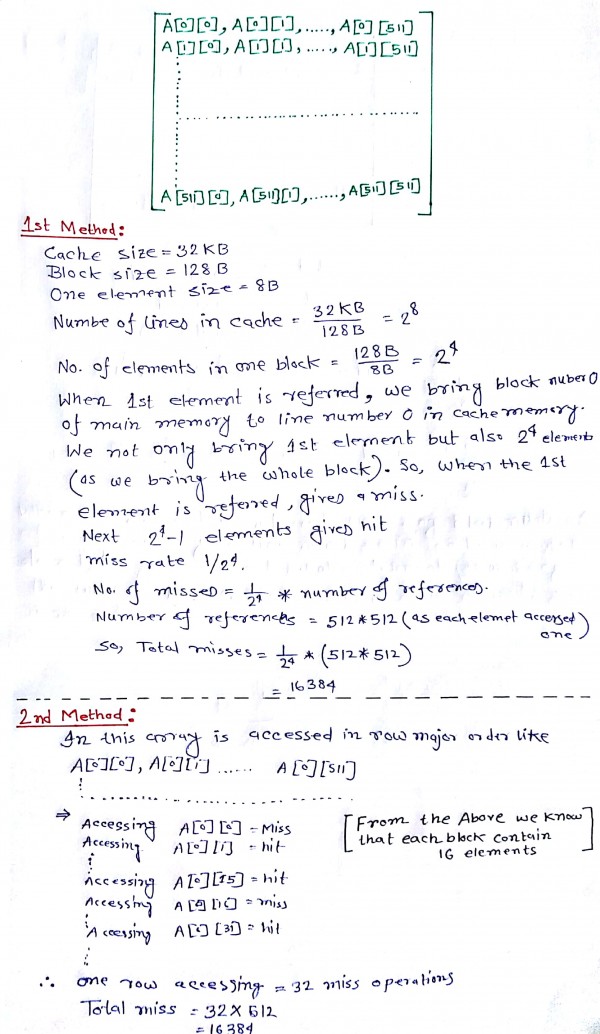 A[0][0], A[0][1],....., A[0][511]
A[1][0], A[1][1],....., A[1][511]
A[511][0], A[511][1],......, A[511][511]
1st Method:
Cache size = 32KB
Block size = 128B
One element size = 8B
Numbe of lines in cache = 32KB/128B = 2^8
No. of elements in one block = 128B/8B = 2^4
When 1st element is referred, we bring block nuber 0
of main memory to line number 0 in cache memory.
We not only bring 1st element but also 2^4 elements
(as we bring the whole block). So, when the 1st
element is referred, gives a miss.
Next 2^4-1 elements gives hit
miss rate 1/2^4.
No. of missed = 1/2^4 * number of references.
Number of references = 512*512 (as each elemet accessed one)
So, Total misses = 1/2^4 * (512*512)
= 16384
2nd Method:
In this array is accessed in row major order like
A[0][0], A[0][1] ...... A[0][511]
⇒ Accessing A[0][0] = Miss
Accessing A[0][1] = hit
Accessing A[0][15] = hit
Accessing A[0][16] = miss
Accessing A[0][31] = hit
[From the Above we know
that each block contain
16 elements]
∴ one row accessing = 32 miss operations
Total miss = 32 X 512
= 16384